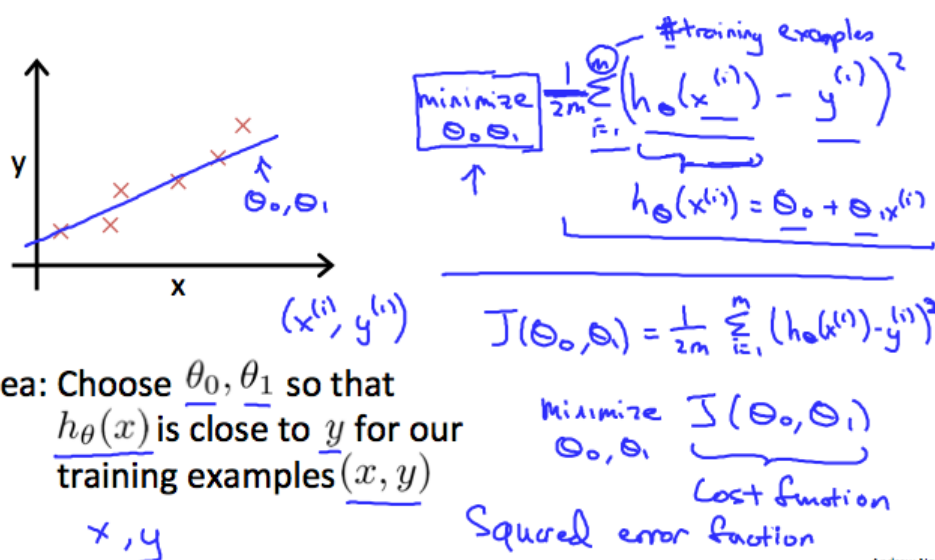 y
x
θ₀, θ₁
(x⁽ⁱ⁾, y⁽ⁱ⁾)
ea: Choose θ₀, θ₁ so that
hθ(x) is close to y for our
training examples (x, y)
x, y
#training examples
minimize
θ₀ θ₁
1/2m Σ_{i=1}^{m} (hθ(x⁽ⁱ⁾) - y⁽ⁱ⁾)²
hθ(x⁽ⁱ⁾) = θ₀ + θ₁x⁽ⁱ⁾
J(θ₀, θ₁) = 1/2m Σ_{i=1}^{m} (hθ(x⁽ⁱ⁾) - y⁽ⁱ⁾)²
minimize J(θ₀, θ₁)
θ₀, θ₁
Cost function
Squared error function